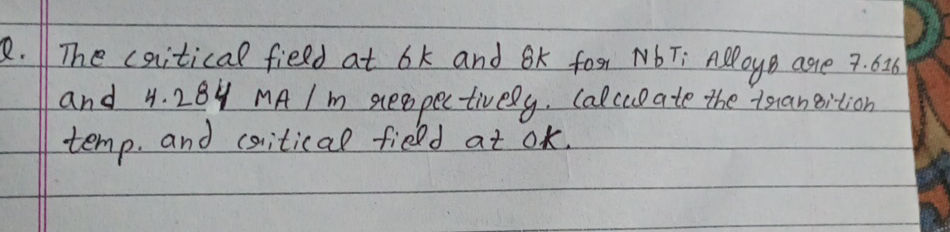 Q. The critical field at 6K and 8K for NbTi Alloys are 7.616
and 4.284 MA/m respectively. Calculate the transition
temp. and critical field at 0K.